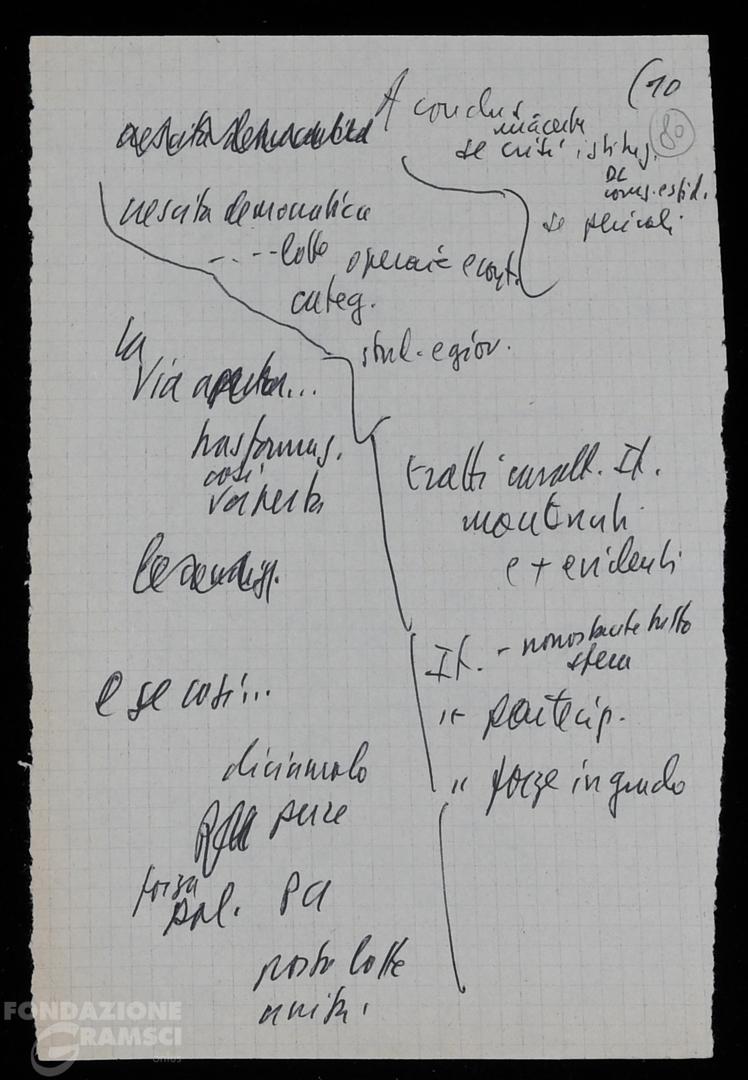 (10
80
A conclus.
se crisi istituz.
DC
se pericoli
crescita democratica
crescita democratica
- . - - lotte operaie e
categ.
stud. e giov.
La
Via aperta...
trasformaz.
così
tratti caratt. It.
mantenuti
e + evidenti
It. - nonostante tutto
spera
" partecip.
" forze in grado
e se così...
diciamolo
pure
forza
pol. PCI
nostre lotte
unità.
FONDAZIONE
GRAMSCI
onlus